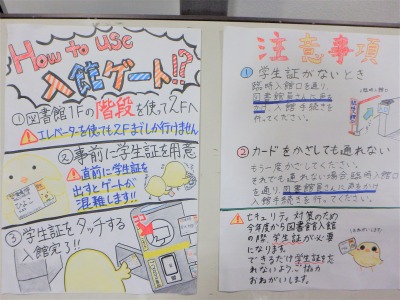 How to use
入館ゲート!?
①図書館1Fの階段を使って2Fへ
エレベーターを使っても2Fまでしか行けません
②事前に学生証を用意
直前に学生証を
出すとゲートが
混雑します!!
③学生証をタッチする
入館完了!!
注意事項
①学生証がないとき
臨時入館口を通り、
図書館員さんに声を
かけ、入館手続きを
行ってください。
臨時入館口
②カードをかざしても通れない
もう一度かざしてください。
それでも通れない場合、臨時入館口
を通り、図書館員さんに声をかけ
入館手続きを行ってください。
セキュリティ対策のため
今年度から図書館入館
の際、学生証が必要
になります。
できるだけ学生証を忘
れないよう、ご協力
おねがいします。